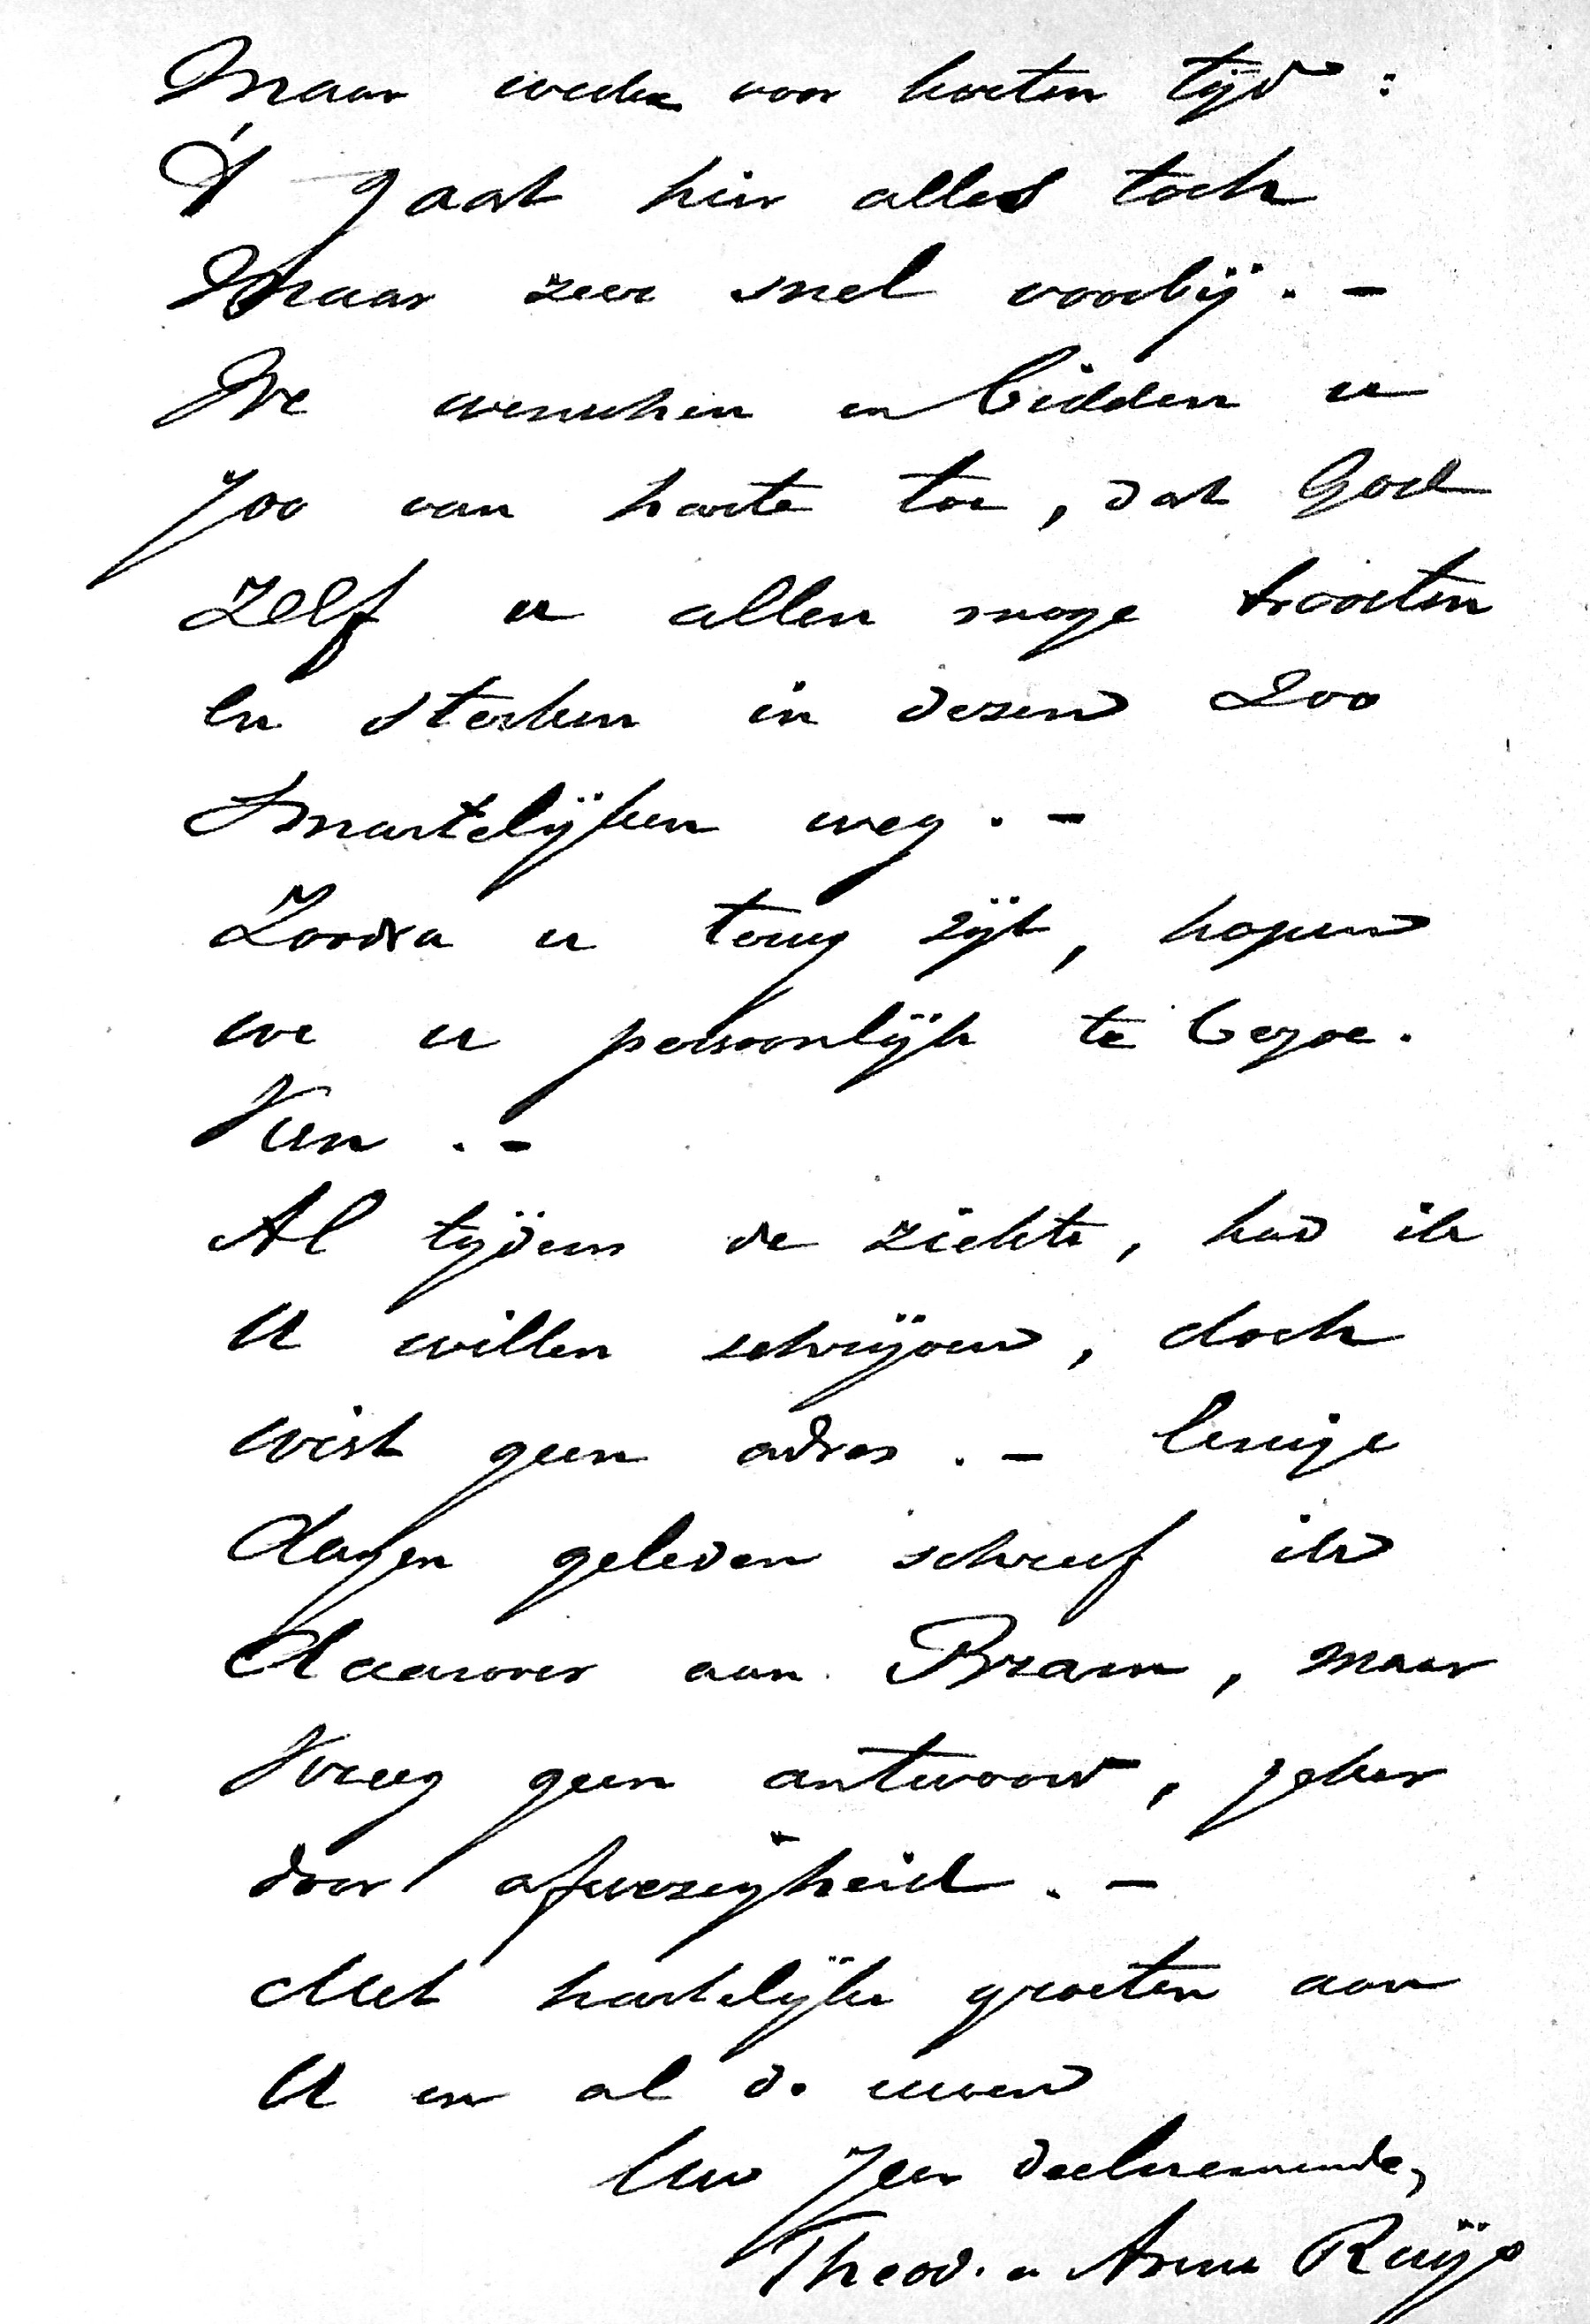 Maar weder voor korten tijd :
't gaat hier alles toch
Maar zeer snel voorbij. -
We wenschen en bidden u
zoo van harte toe, dat God
zelf u allen moge troosten
en sterken in dezen zoo
smartelijken weg. -
Zoodra u terug zijt, hopen
we u persoonlijk te bezoe-
ken. -
Al tijdens de ziekte, had ik
U willen schrijven, doch
wist geen adres. - Eenige
dagen geleden schreef ik
daarover aan Bram, maar
kreeg geen antwoord, zeker
door afwezigheid. -
Met hartelijke groeten aan
U en al de uwen
Uw zeer deelnemende,
Theod. en Anna Ruijs